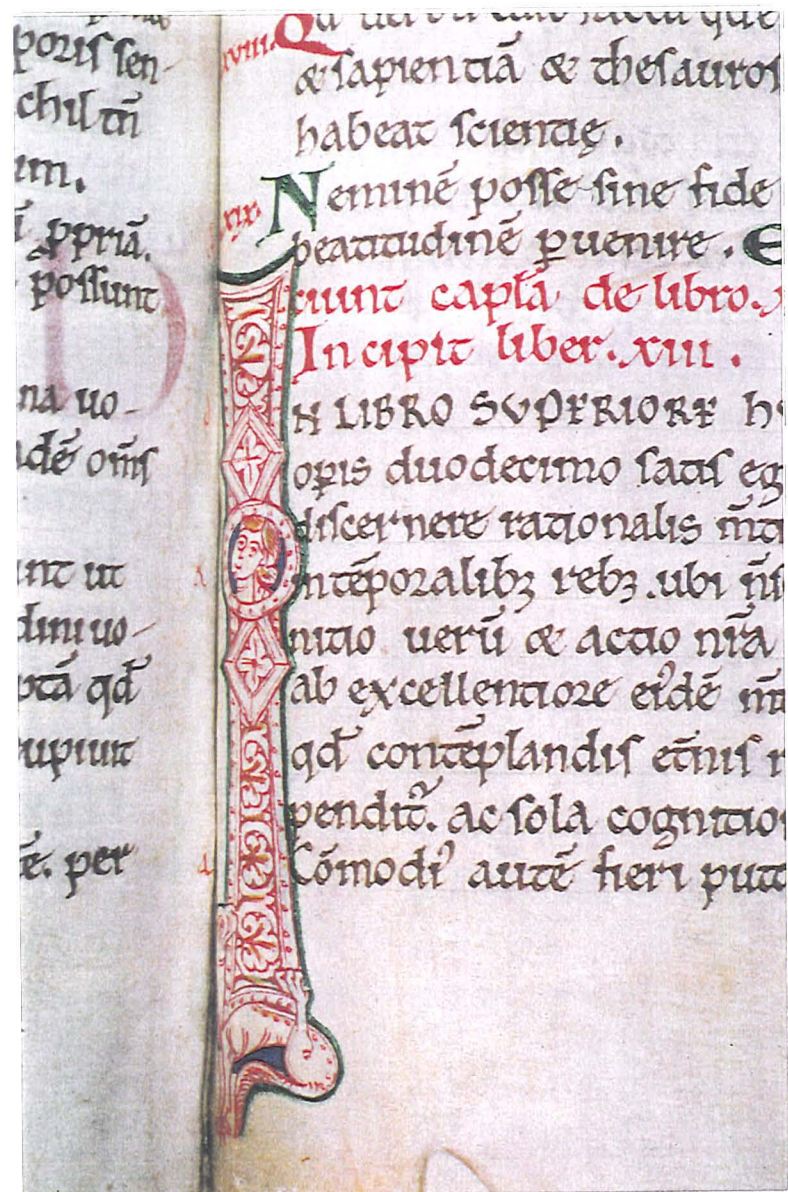 poris sen-
chil tñ
um.
ꝓpriā.
possunt
na uo-
adē om̄s
unt ut
dini uo-
ptā qđ
cupiuit
ē. per
xviii. Q
& sapientiā & thesauros
habeat scientię.
xix. Neminē posse sine fide
beatitudinē ꝑuenire. E
ciunt capl̄a de libro. x
Incipit liber. xiii.
IN LIBRO SVPERIORE h
opis duodecimo satis eg
discernere rationalis m̄t
intēporalibꝫ rebꝫ. ubi n̄s
nitio uerū & actio nr̄a
ab excellentiore eiꝰdē m̄t
qđ contēplandis et̄nis r
pendit᷑. ac sola cognitio
Cōmodiꝰ autē fieri put